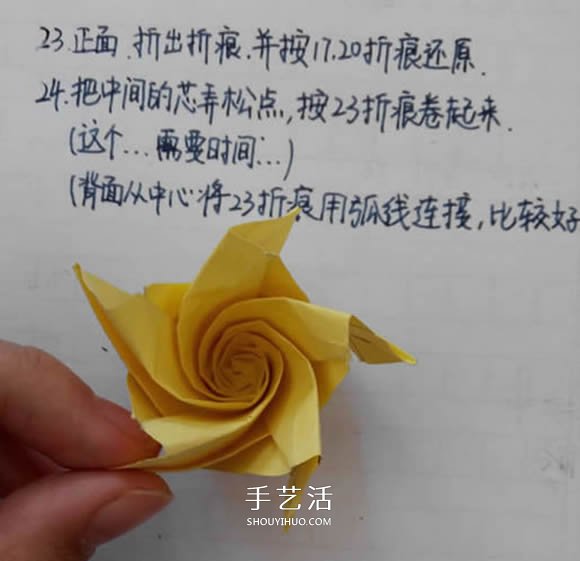 23.正面.折出折痕.并按17.20折痕还原.
24.把中间的芯弄松点,按23折痕卷起来.
(这个…需要时间…)
(背面从中心将23折痕用弧线连接,比较好
手艺活
SHOUYIHUO.COM